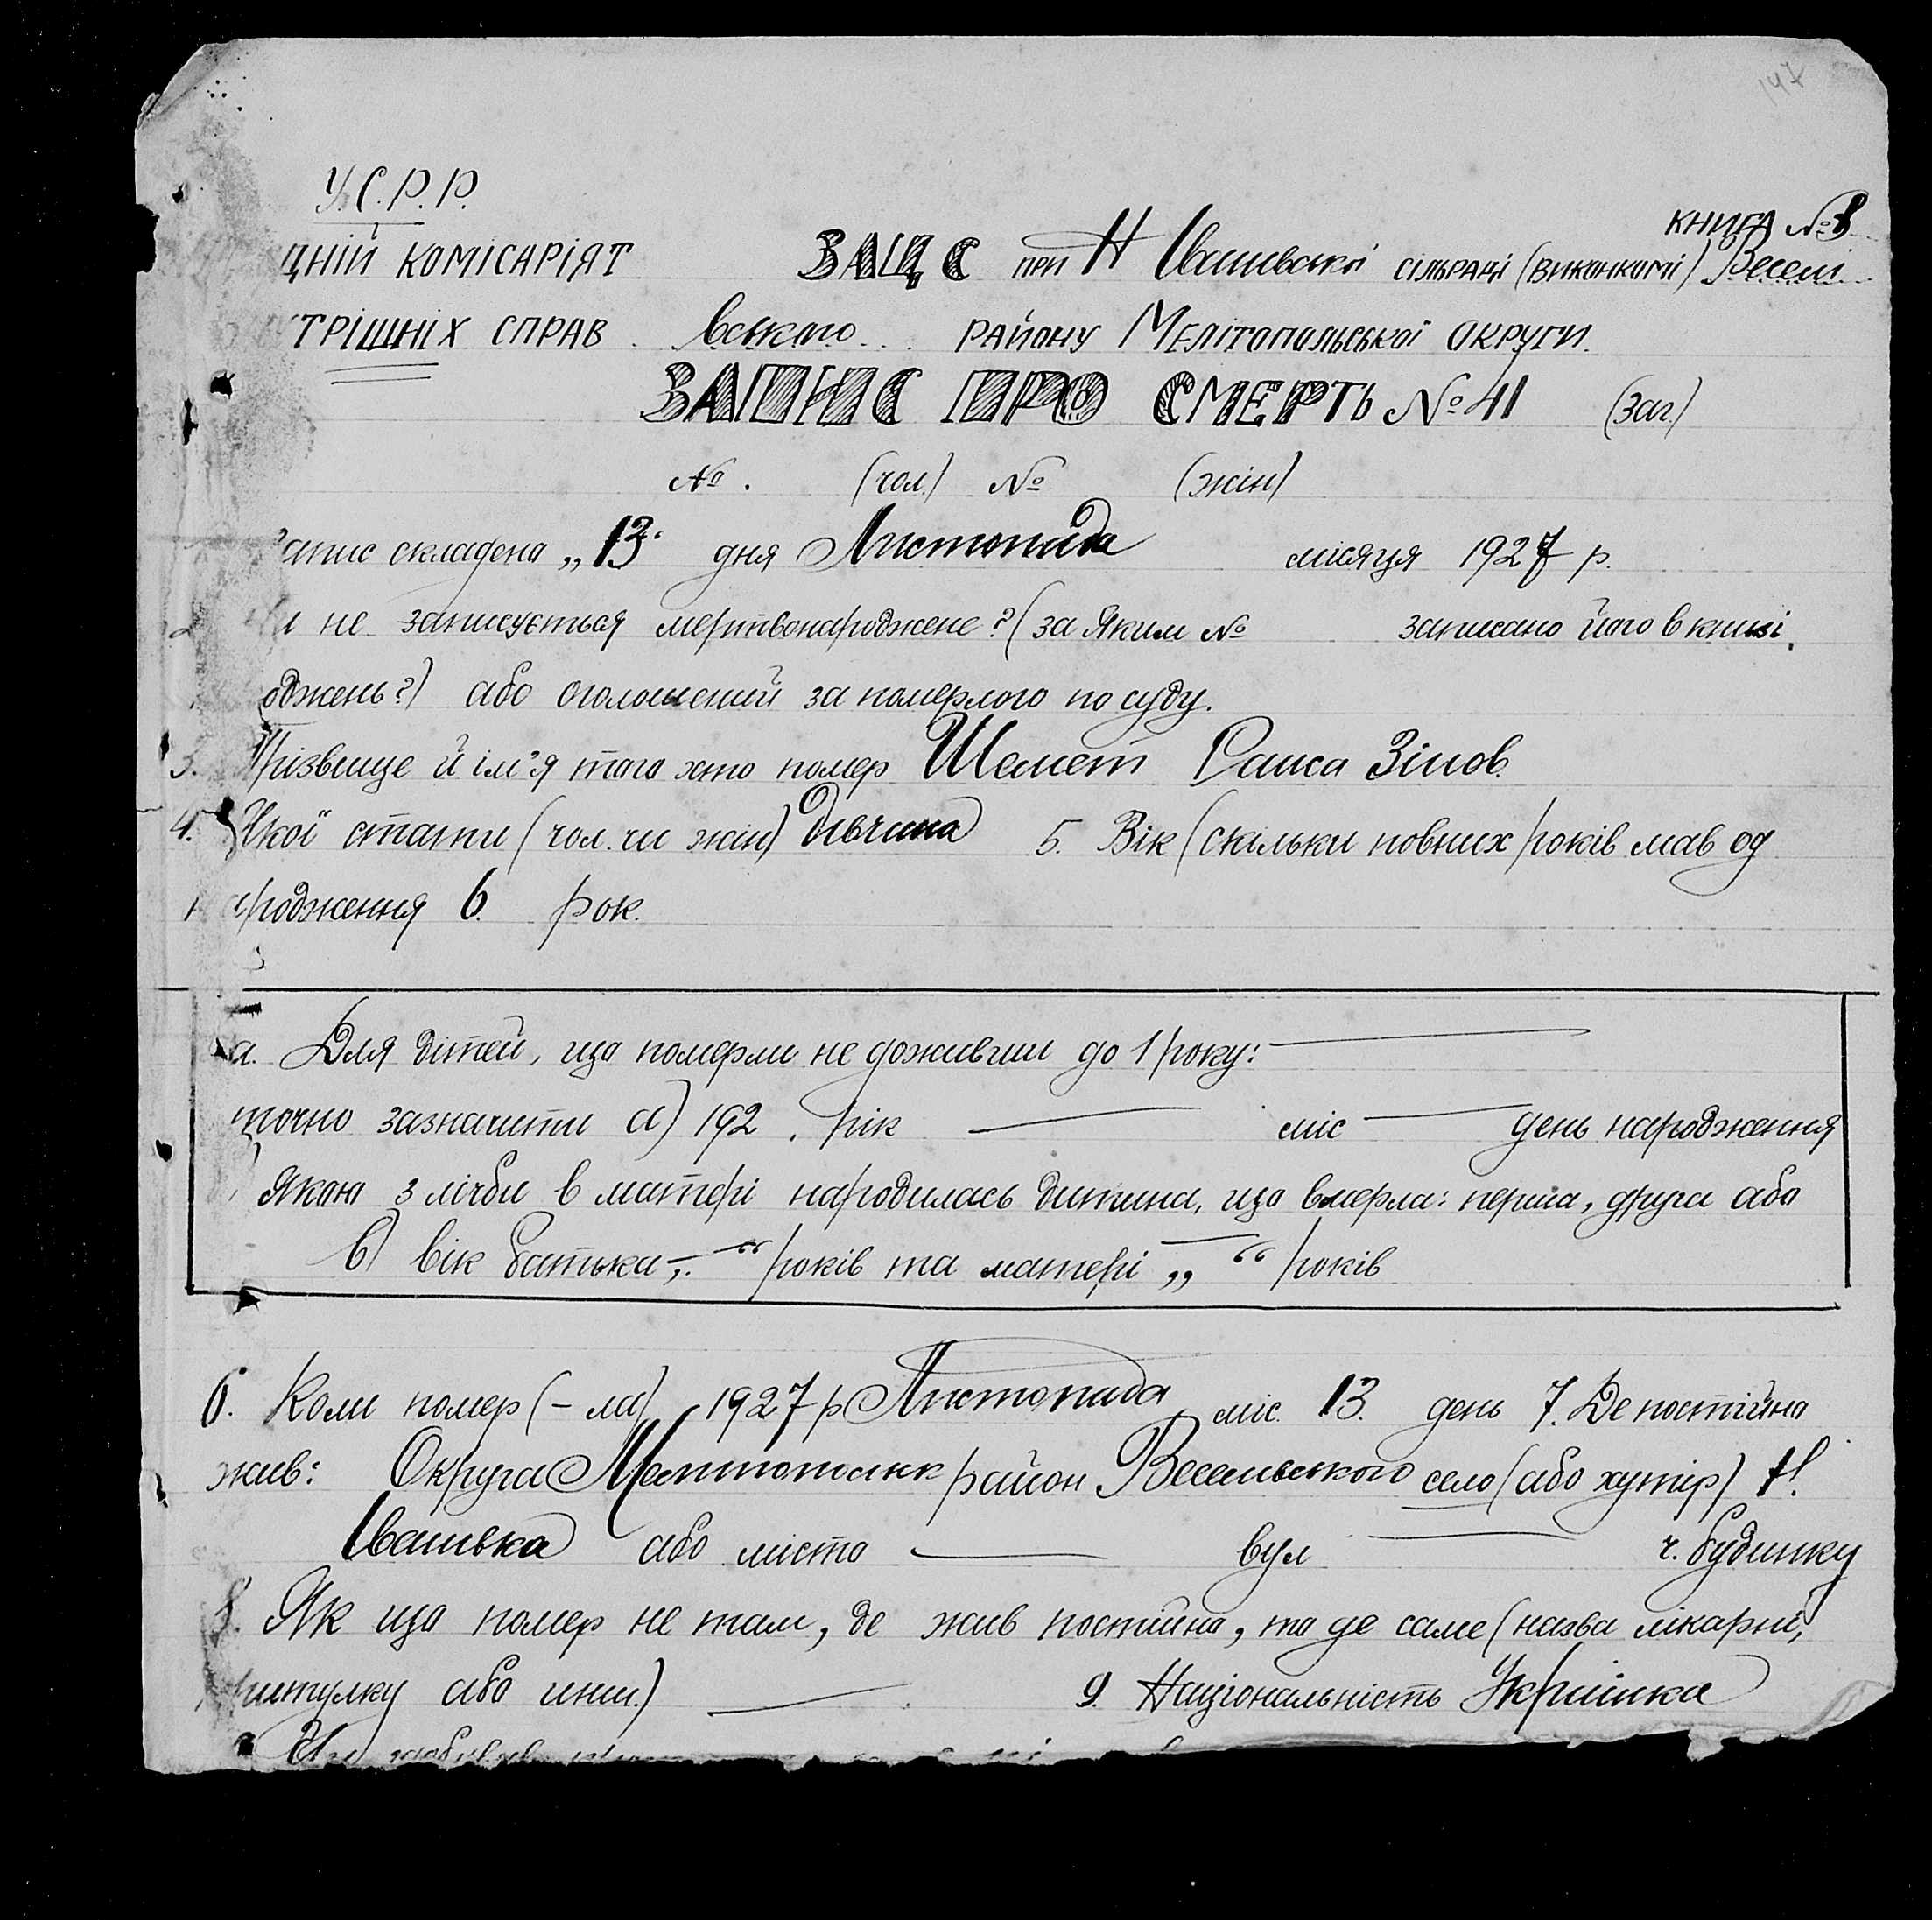 147
У.С.Р.Р.
КНИГА № 8
ДНІЙ КОМІСАРІЯТ ЗАЦС при Н Іванівської сільраді (виконкомі) Веселі
ТРІШНІХ СПРАВ вського РАЙОНУ МЕЛІТОПОЛЬСЬКОЇ ОКРУГИ.
ЗАПИС ПРО СМЕРТЬ № 41 (заг.)
№ . (чол.) № (жін)
апис складено „13“ дня Листопада місяця 1927 р.
и не записується мертвонароджене? (за яким № записано його в книзі
оджень?) або оголошений за померлого по суду.
3. Прізвище й ім'я того хто помер Шемет Раиса Зінов.
4. Якої стати (чол. чи жін) Дівчина 5. Вік (скільки повних років мав од
народження 6. рок.
а. Для дітей, що померли не доживши до 1 року:
точно зазначити а) 192 . рік міс день народження
якою з лічби в матері народилась дитина, що вмерла: перша, друга або
в) вік батька „ “ років та матері „ “ років
6. Коли помер (-ла) 1927 р Листопада міс. 13. день 7. Де постійно
жив: Округа Мелітопільск район Веселівського село (або хутір) Н.
Іванівка або місто вул ч. будинку
8. Як що помер не там, де жив постійно, то де саме (назва лікарні,
ритулку або инш.) 9. Національність Украінка